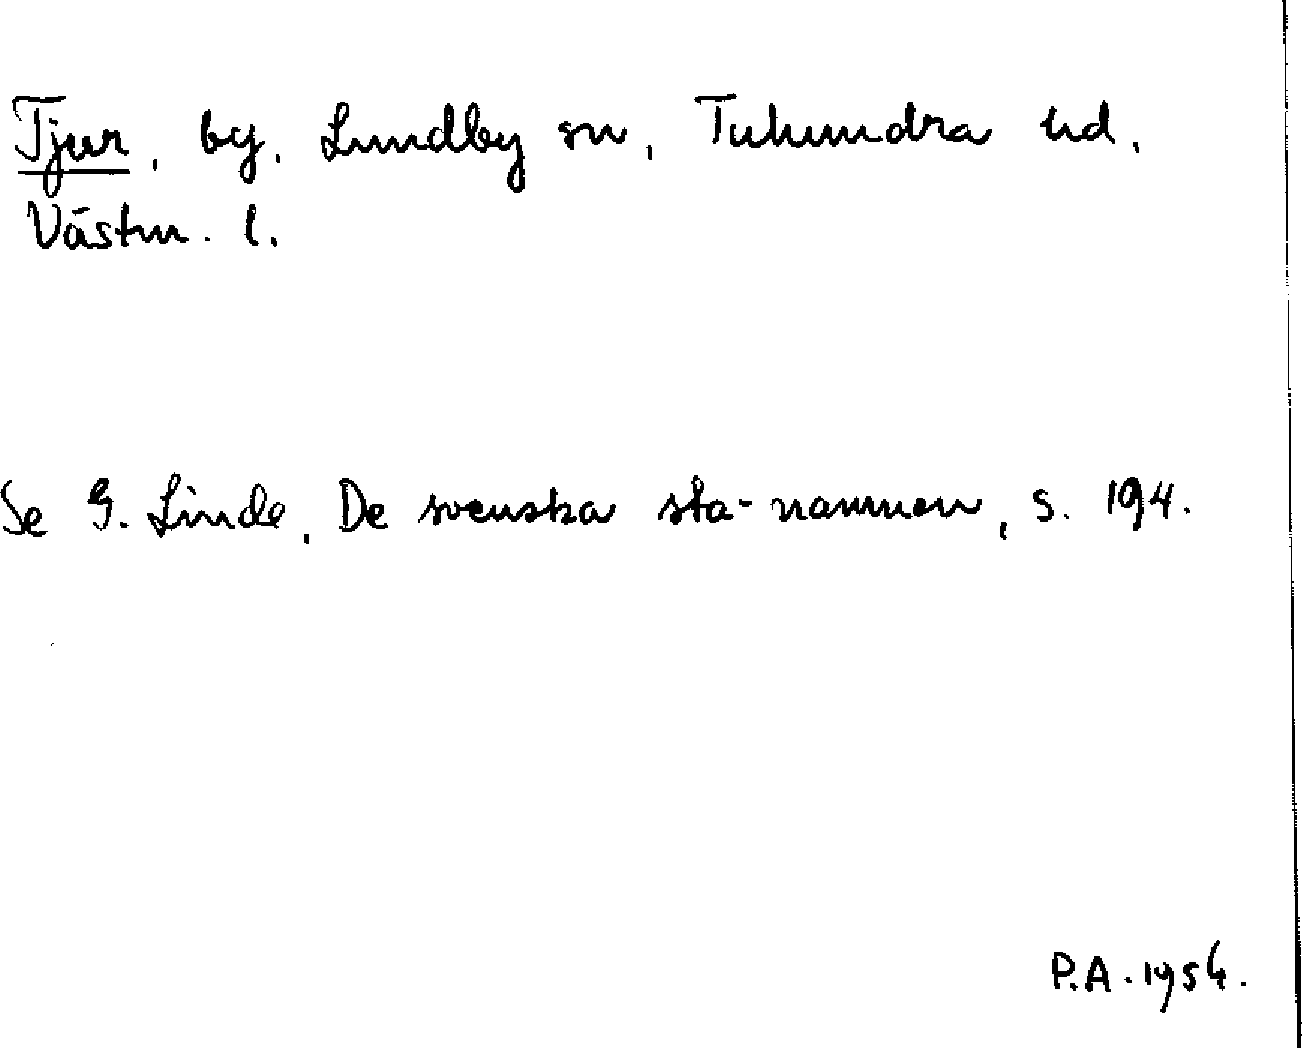 Tjur, by, Lundby sn, Tuhundra hd,
Västm. l.
Se G. Linde, De svenska sta-namnen, s. 194.
P.A. 1954.